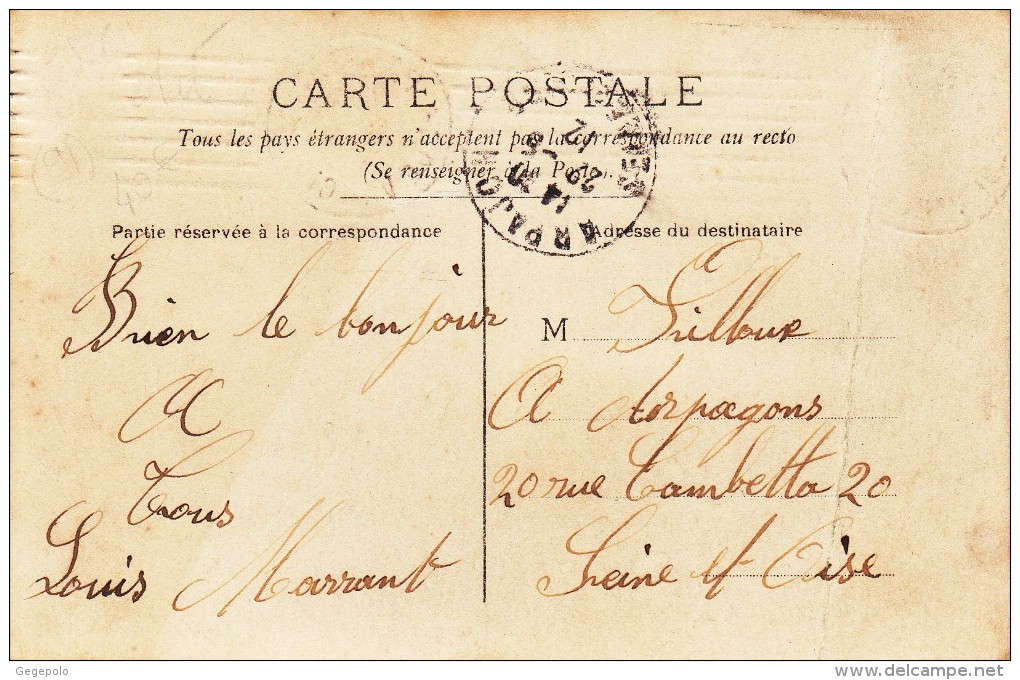 CARTE POSTALE
Tous les pays étrangers n'acceptent pas la correspondance au recto
(Se renseigner à la Poste).
Partie réservée à la correspondance
Adresse du destinataire
Bien le bonjour
A
Tous
Louis Marrant
M Trilloux
A Arpagons
20 rue Gambetta 20
Seine et Oise
ARPAJON
14
29 12
Gegepolo
www.delcampe.net